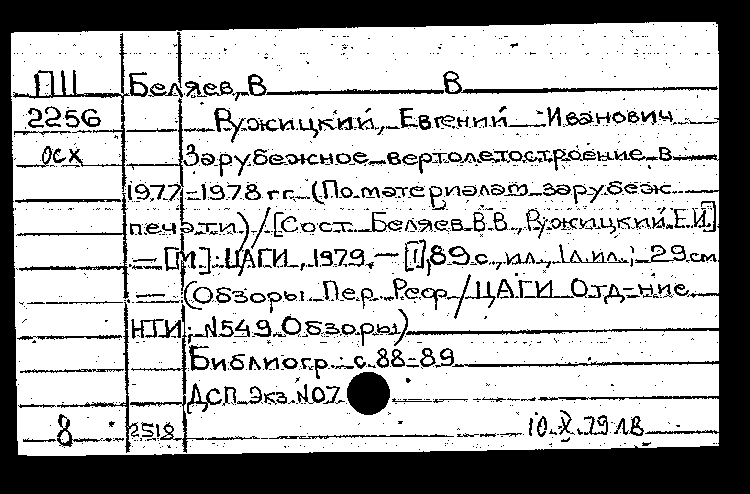 ПII Беляев, В В
2256 Ружицкий, Евгений Иванович
осх Зарубежное вертолетостроение в
1977-1978 гг. (По материалам зарубеж.
печати) / [Сост. Беляев В.В., Ружицкий Е.И.]
— [М]: ЦАГИ, 1979. — [1], 89 с., ил., 1 л. ил.; 29 см
— (Обзоры. Пер. Реф / ЦАГИ Отд-ние
НТИ; №549 Обзоры)
Библиогр.: с. 88-89
ДСП Экз. №07
8 2518 10.X.79 ЛВ